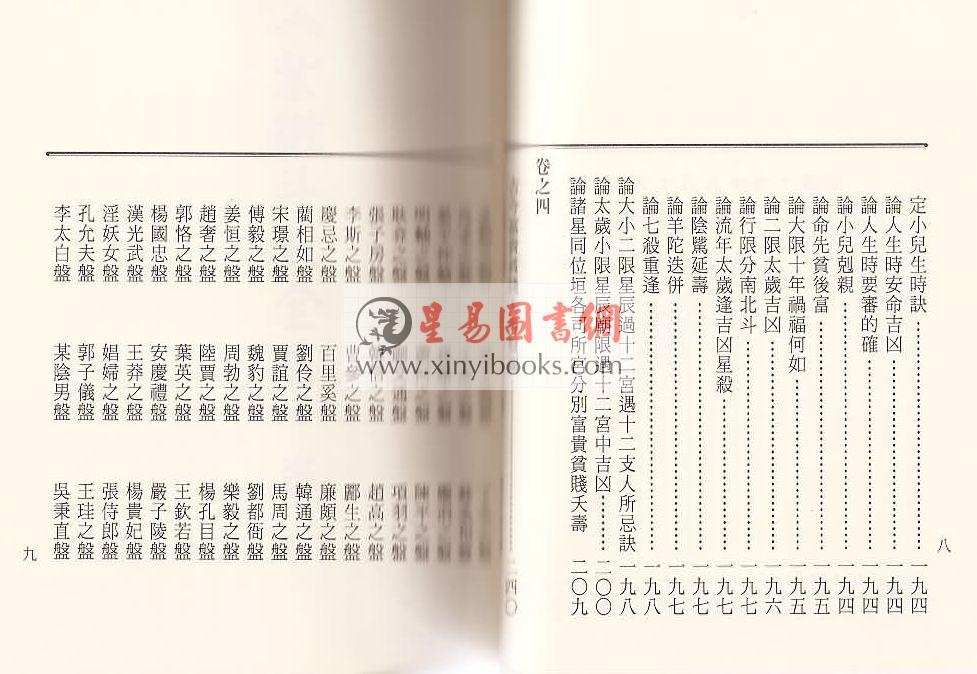 八
定小兒生時訣……一九四
論人生時安命吉凶……一九四
論人生時要審的確……一九四
論小兒剋親……一九四
論命先貧後富……一九五
論大限十年禍福何如……一九五
論二限太歲吉凶……一九六
論行限分南北斗……一九七
論流年太歲逢吉凶星殺……一九七
論陰騭延壽……一九七
論羊陀迭併……一九七
論七殺重逢……一九八
論大小二限星辰過十二宮遇十二支人所忌訣 一九八
論太歲小限星辰廟限遇十二宮中吉凶……二〇〇
論諸星同位垣各司所宜分別富貴貧賤夭壽 二〇九
卷之四
二四〇
陳平之盤
項羽之盤
張子房盤 趙高之盤
李斯之盤 酈生之盤
慶忌之盤 百里奚盤 廉頗之盤
藺相如盤 劉伶之盤 韓通之盤
宋璟之盤 賈誼之盤 馬周之盤
傅毅之盤 魏豹之盤 劉都衙盤
姜恒之盤 周勃之盤 樂毅之盤
趙奢之盤 陸賈之盤 楊孔目盤
郭恪之盤 葉英之盤 王欽若盤
楊國忠盤 安慶禮盤 嚴子陵盤
漢光武盤 王莽之盤 楊貴妃盤
淫妖女盤 娼婦之盤 張侍郎盤
孔允夫盤 郭子儀盤 王珪之盤
李太白盤 某陰男盤 吳秉直盤
九
星易圖書網
www.xinyibooks.com